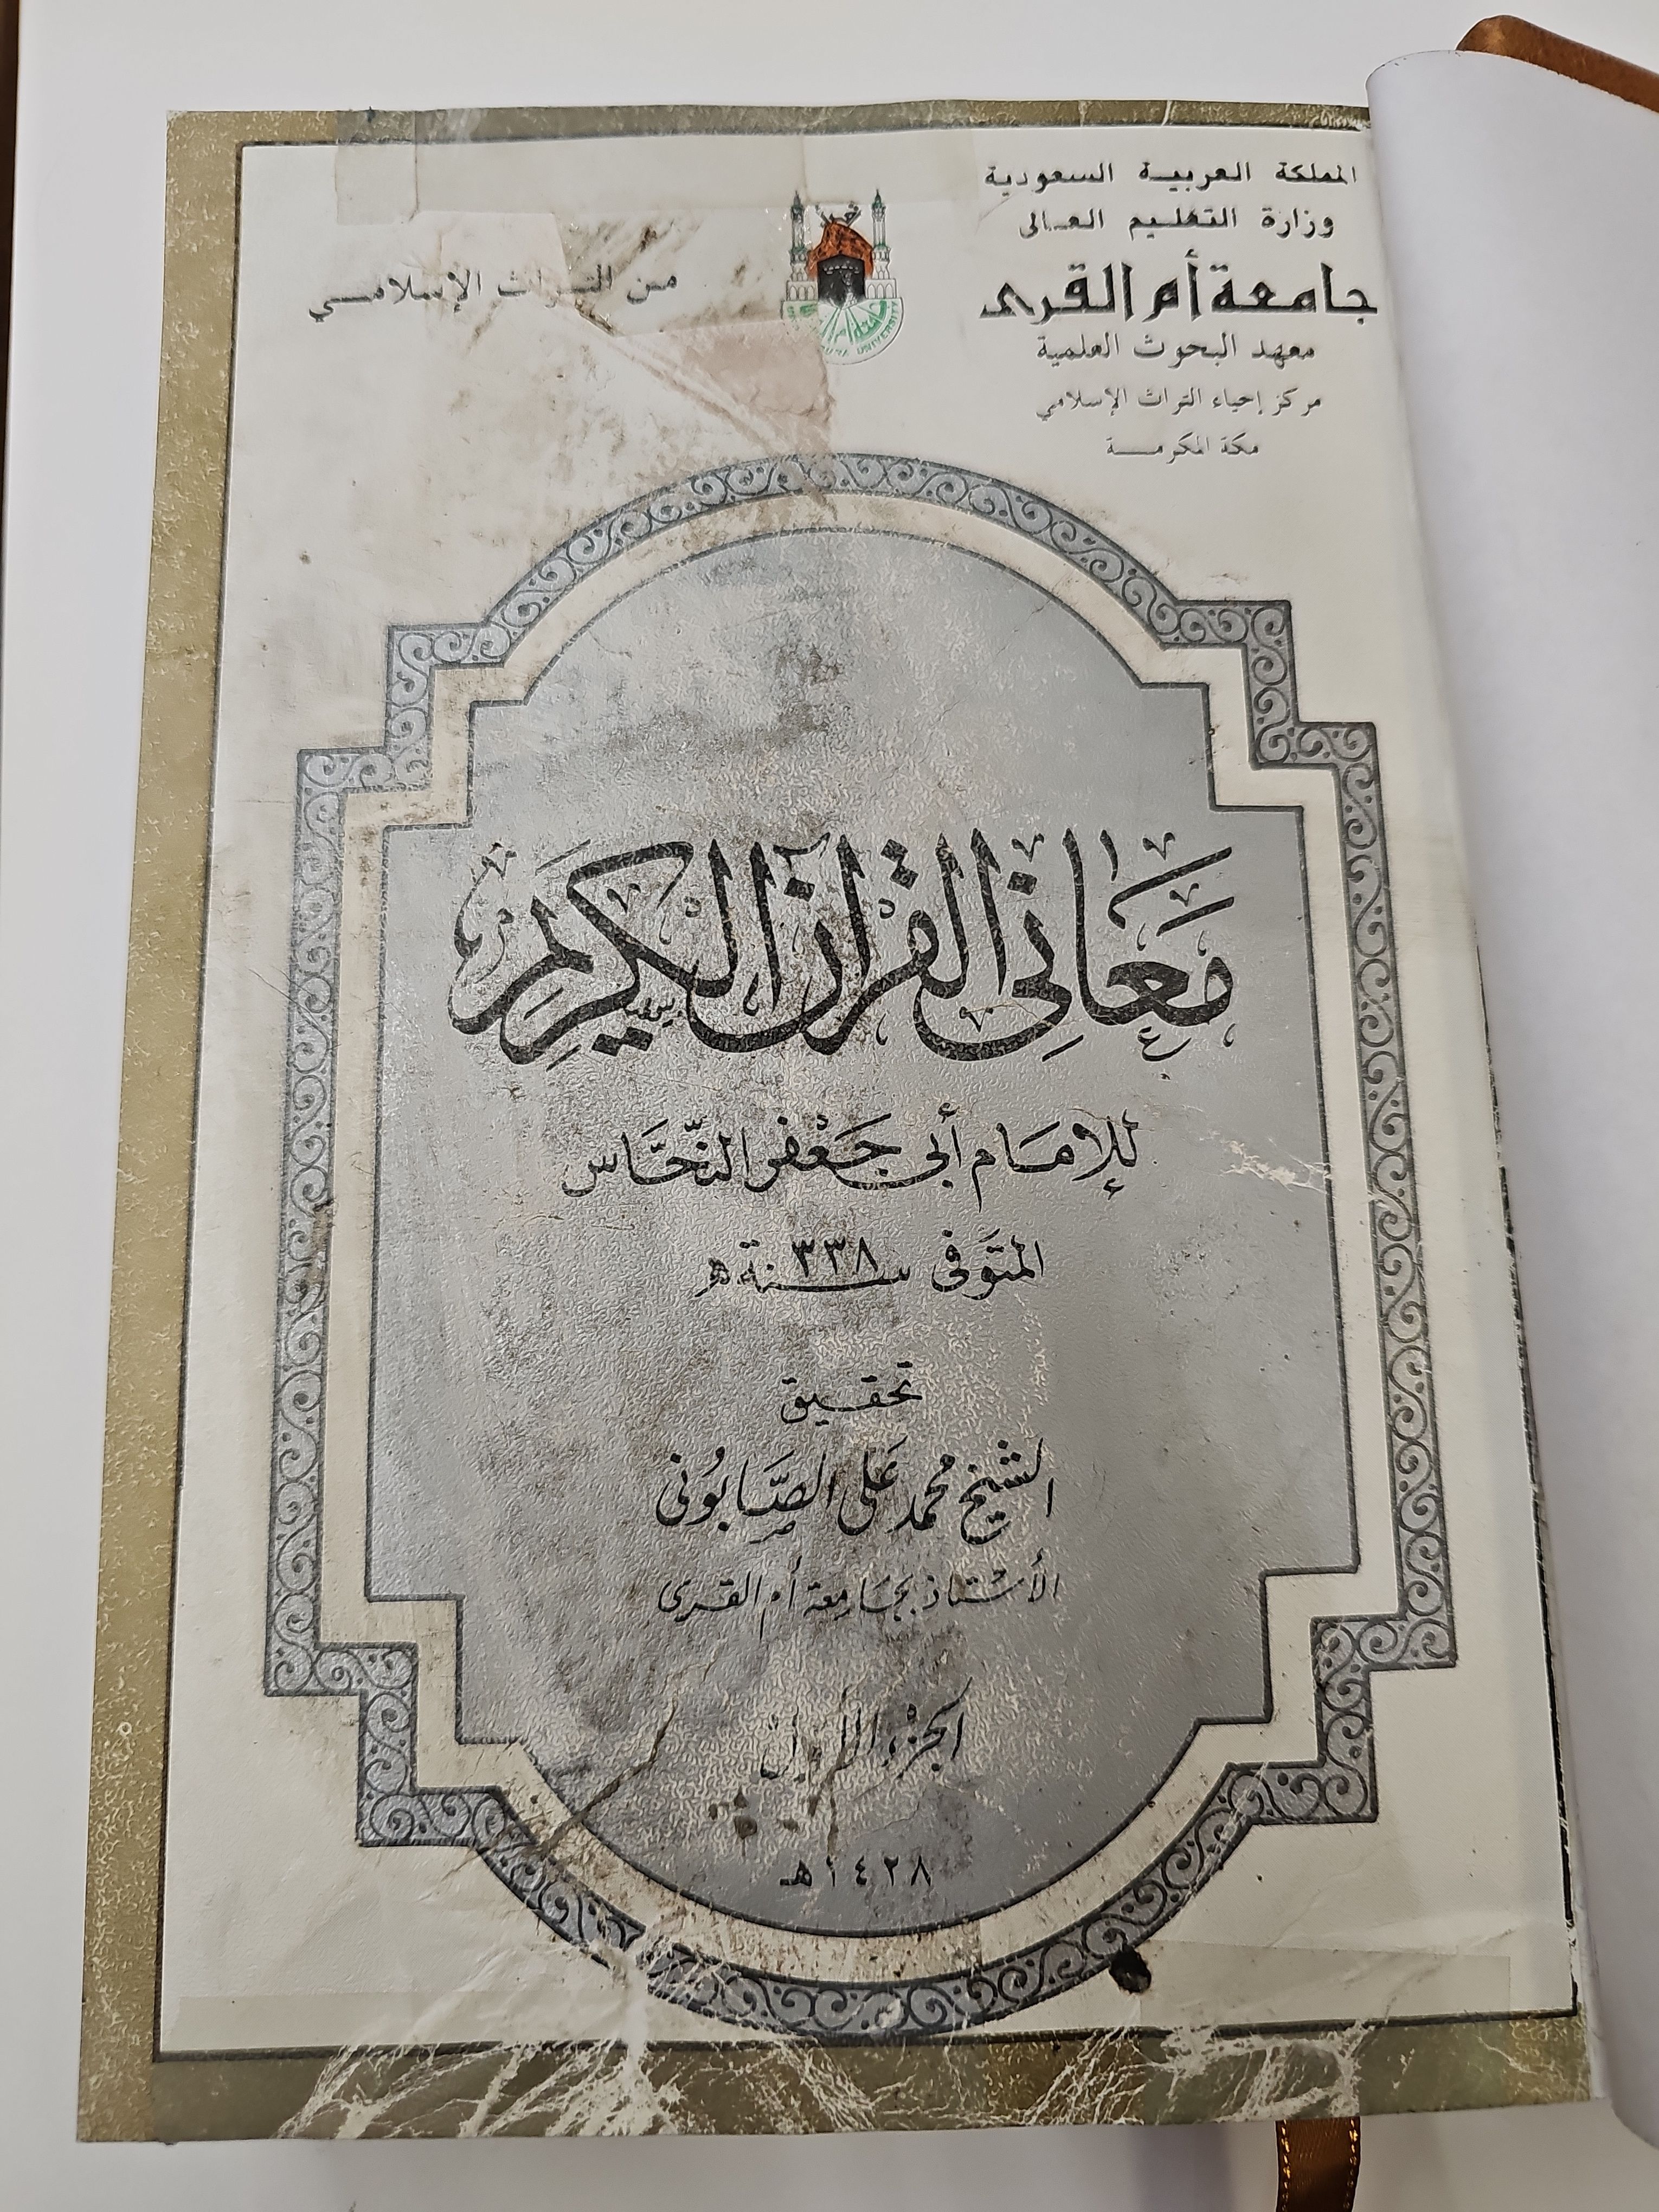 المملكة العربية السعودية
وزارة التعليم العالى
جامعة أم القرى
معهد البحوث العلمية
مركز إحياء التراث الإسلامي
مكة المكرمة
من التراث الإسلامي
مَعَاني القرآن الكريم
للإمَام أبي جَعْفر النّحَّاس
المتَوفى سنة ٣٣٨ هـ
تحقيق
الشيخ محمد عَلى الصَّابُونى
الأسْتاذ بجَامعة أم القرى
الجزء الأول
١٤٢٨هـ